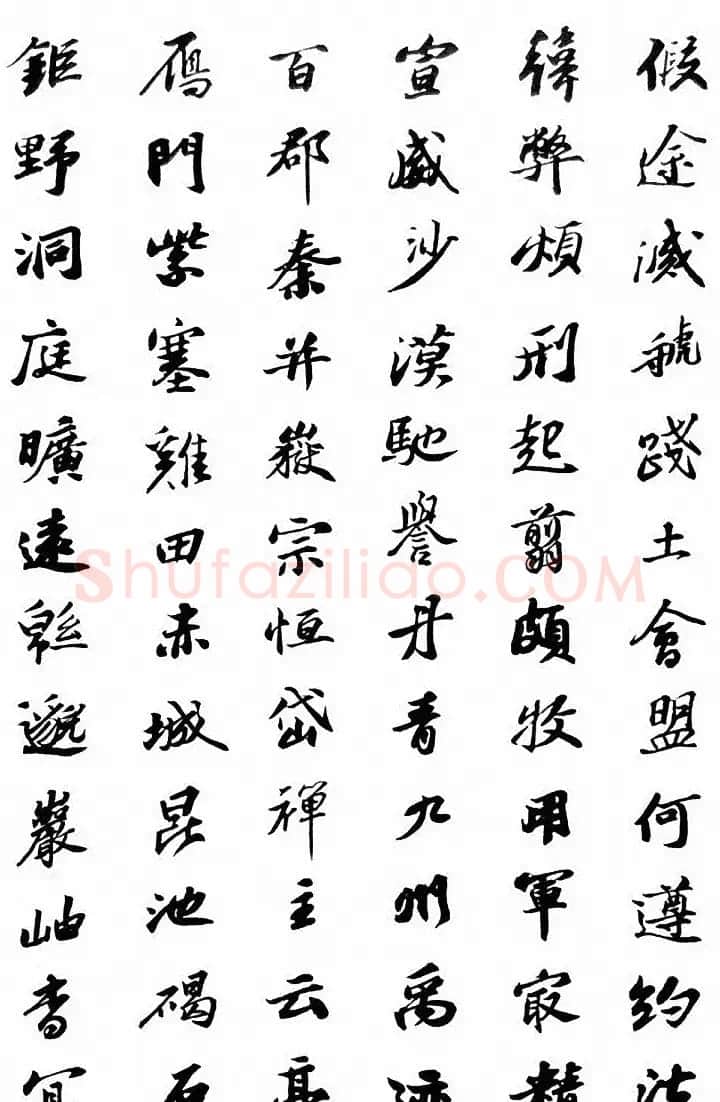 假途滅虢踐土會盟何遵約法
韓弊煩刑起翦頗牧用軍㝡精
宣威沙漠馳譽丹青九州禹迹
百郡秦并嶽宗恒岱禪主云亭
鴈門紫塞雞田赤城昆池碣石
鉅野洞庭曠遠緜邈巖岫杳冥
Shufaziliao.COM